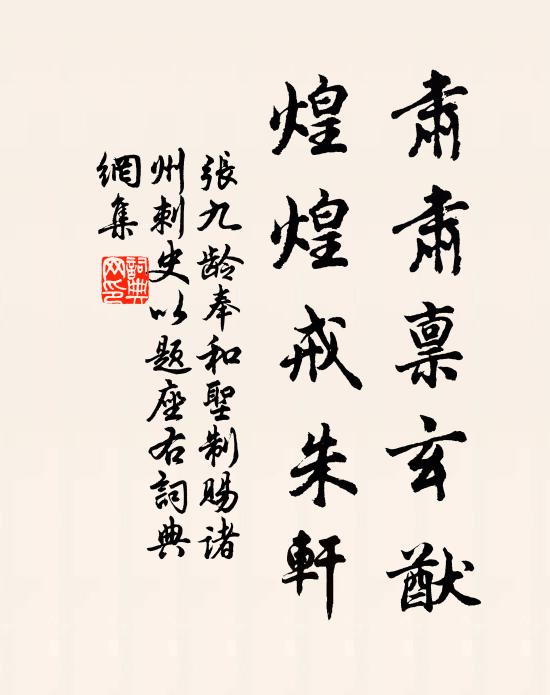 肅肅禀玄猷
煌煌戒朱軒
張九齡奉和聖制賜諸
州刺史以题座右詞典
網集
詞典
网印